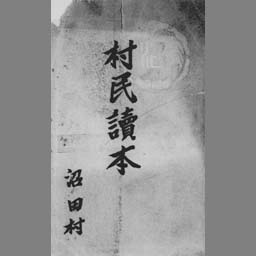 村民讀本
沼田村